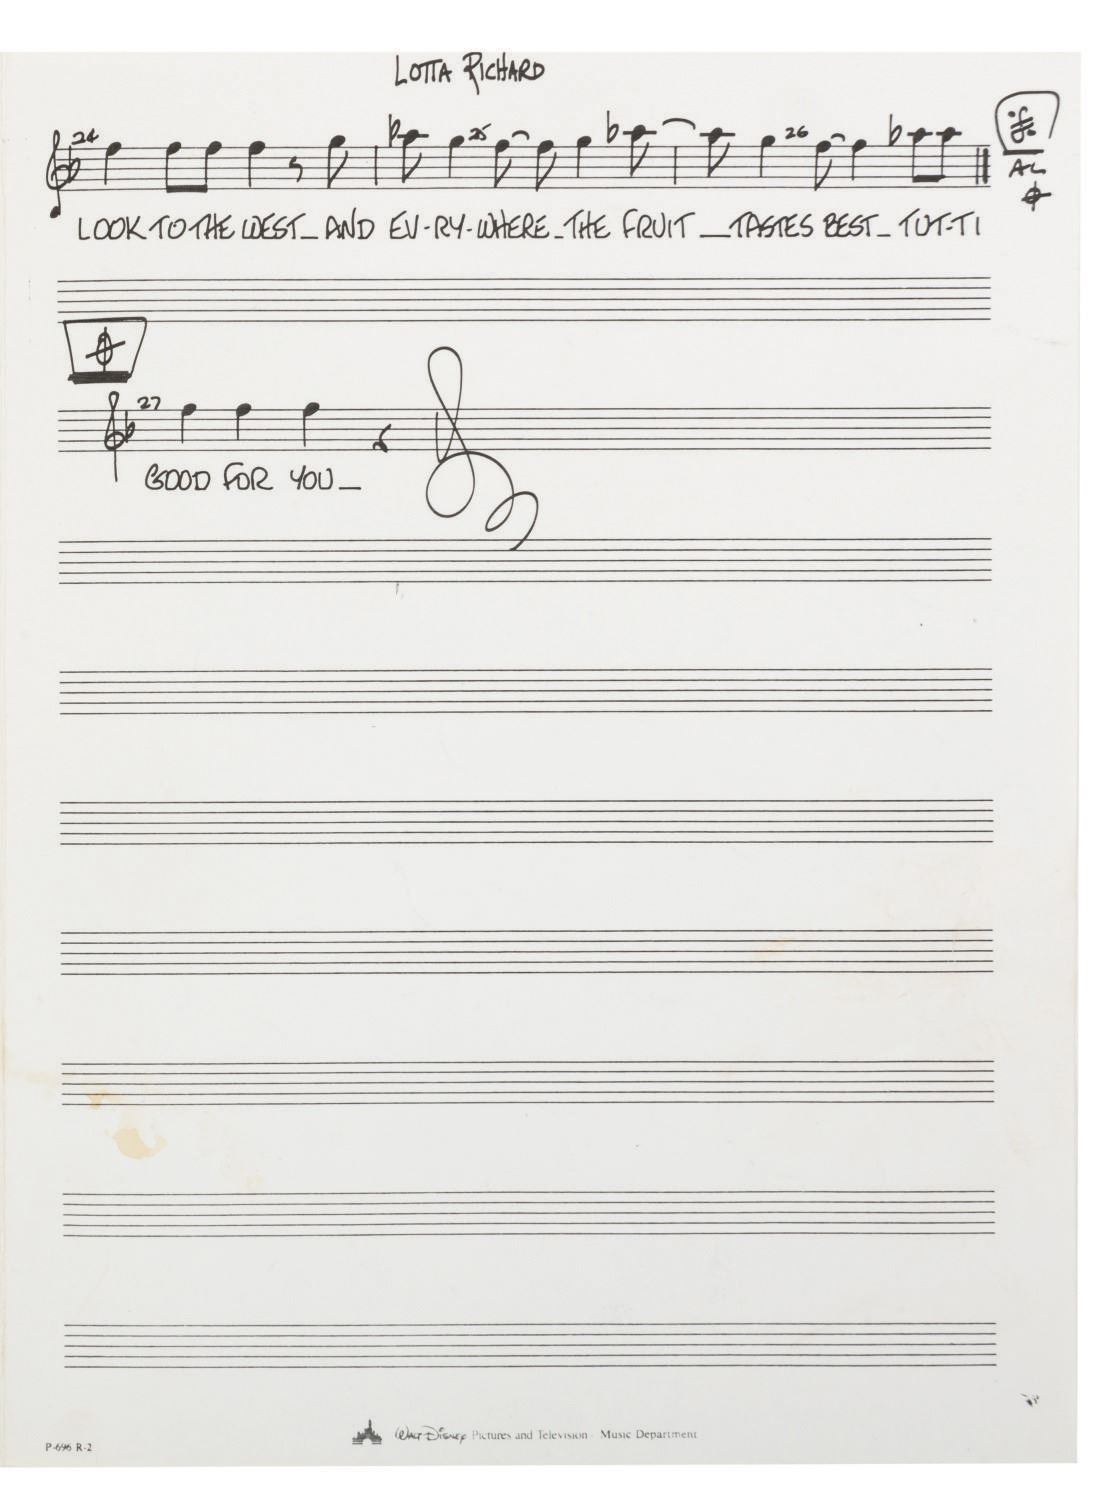 LOTTA RICHARD
24 25 26
AL
LOOK TO THE WEST_ AND EV-RY-WHERE_THE FRUIT _ TASTES BEST_ TUT-TI
27
GOOD FOR YOU_
WALT DISNEY Pictures and Television Music Department
P-696 R-2